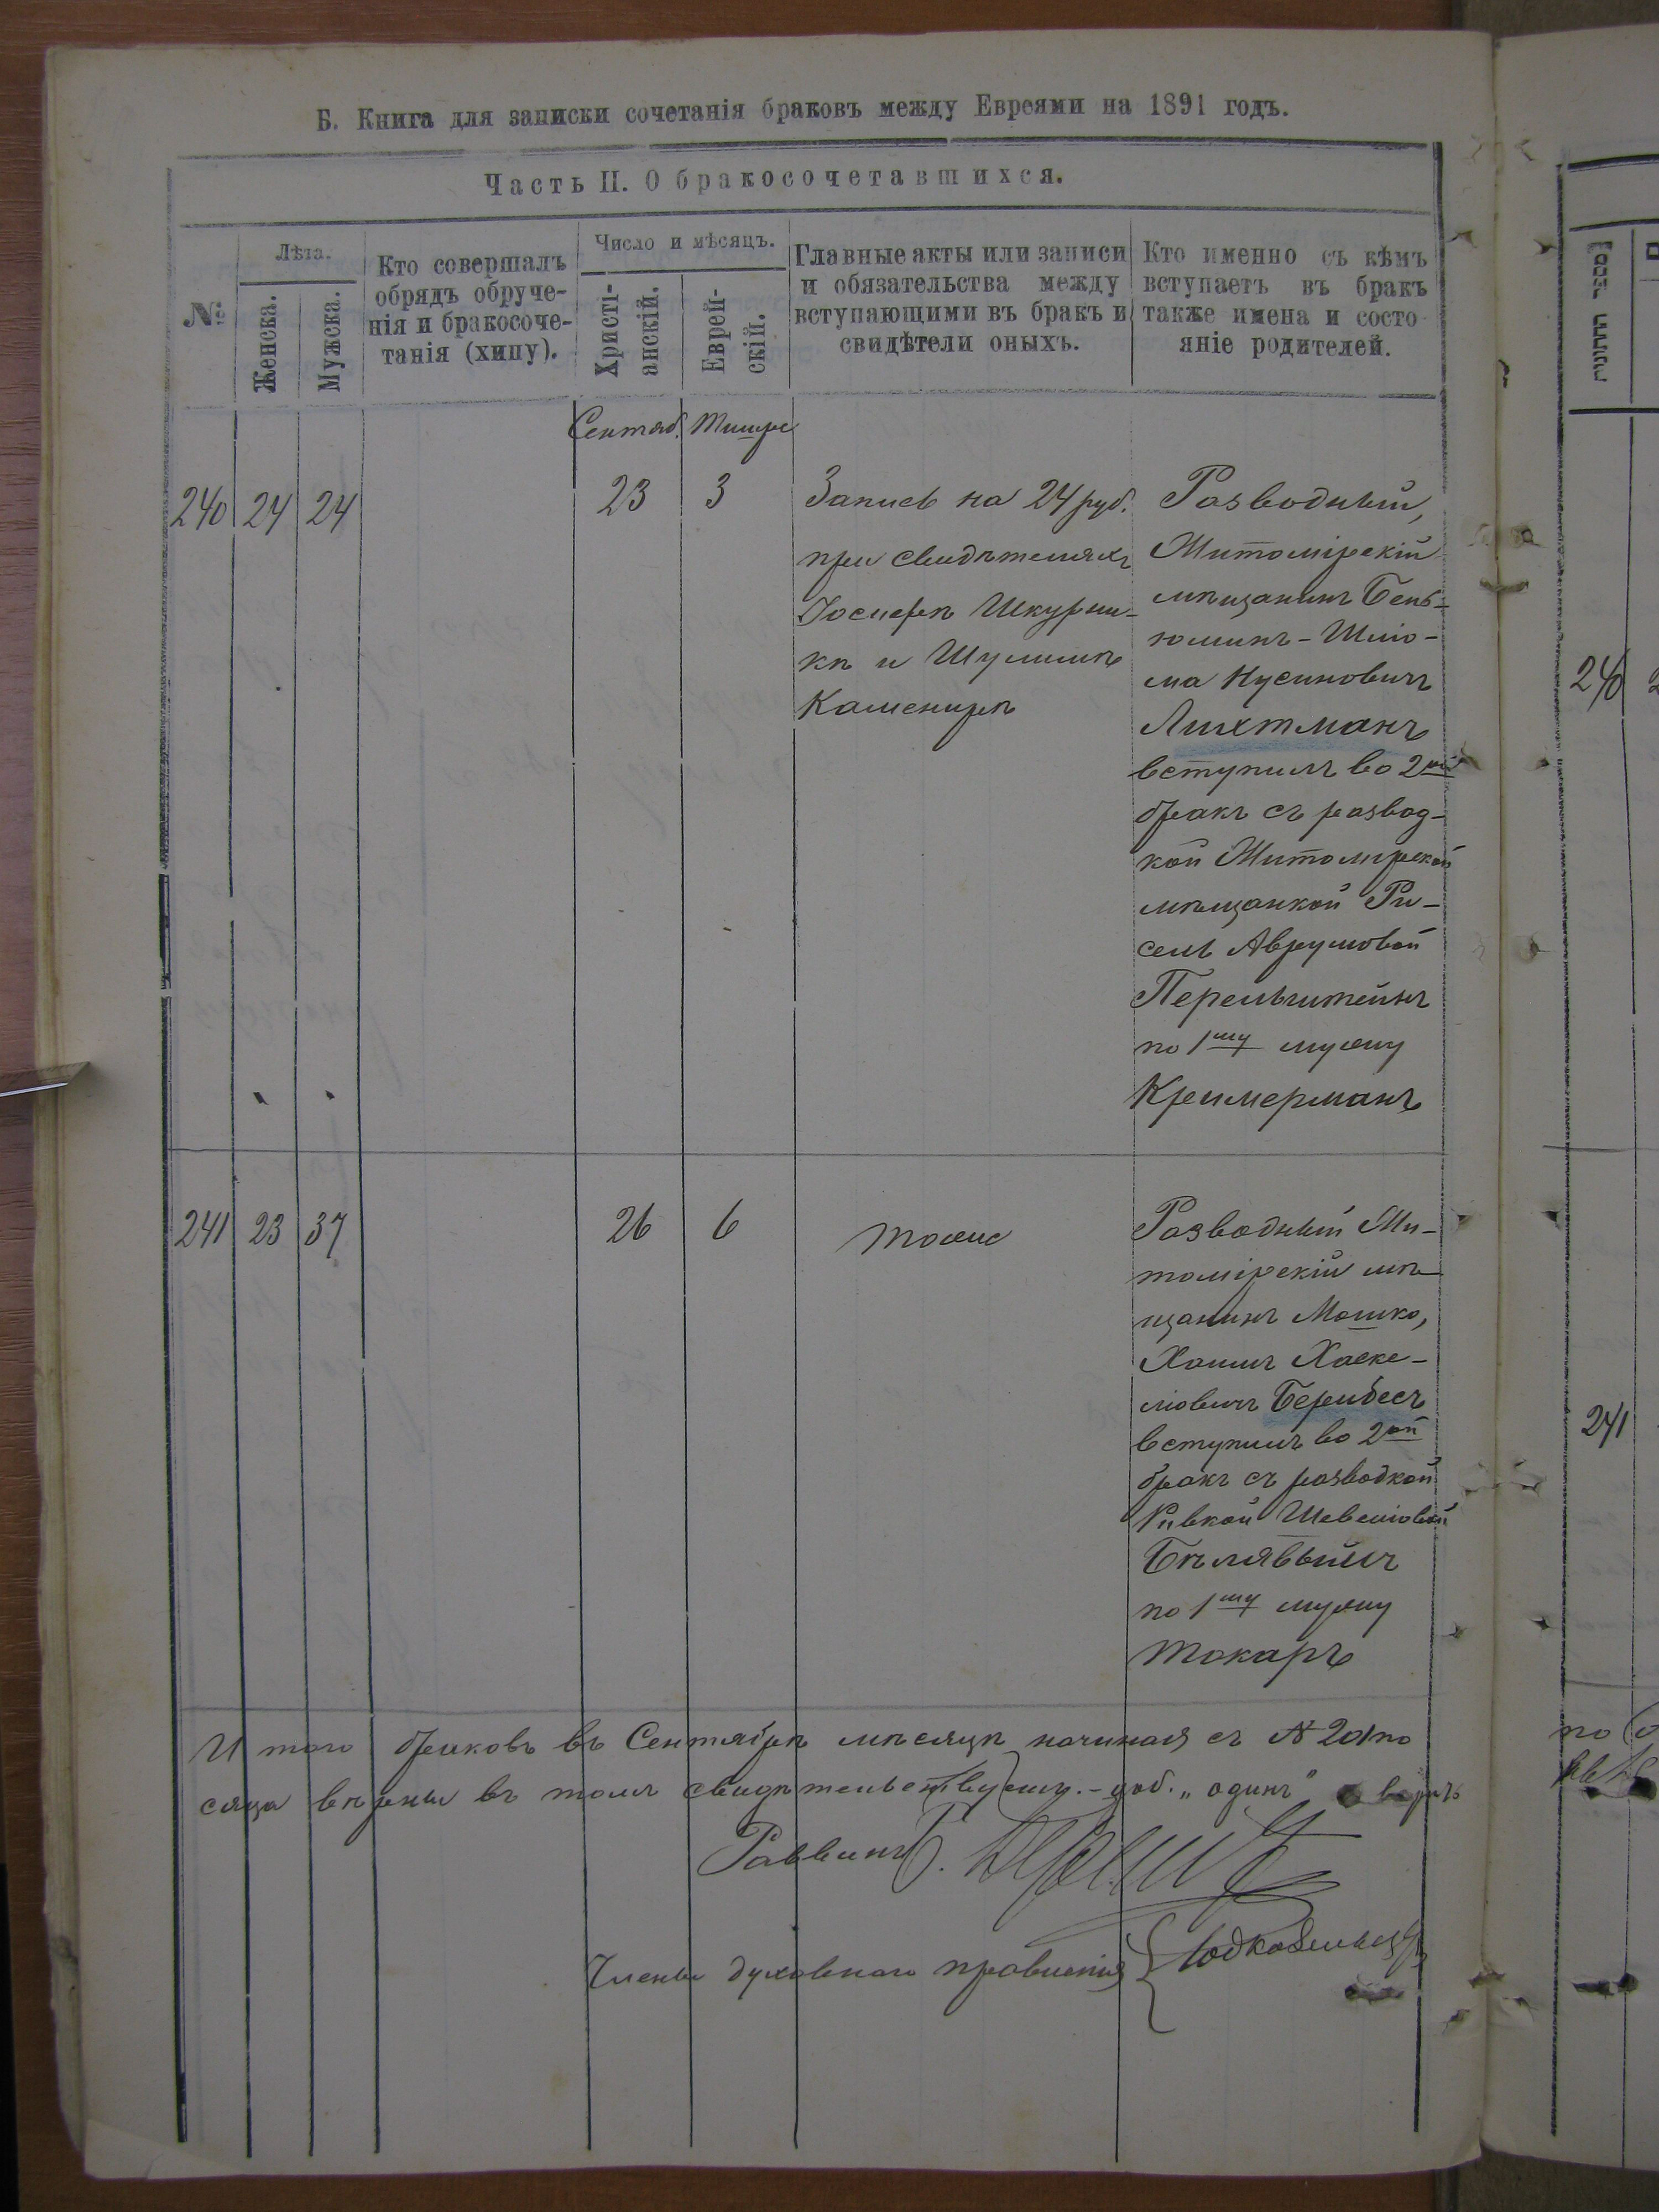 Б. Книга для записки сочетанія браковъ между Евреями на 1891 годъ.
Часть II. О бракосочетавшихся.
№
Лѣта.
Женска.
Мужска.
Кто совершалъ
обрядъ обруче-
нія и бракосоче-
танія (хипу).
Число и мѣсяцъ.
Христі-
анскій.
Еврей-
скій.
Главные акты или записи
и обязательства между
вступающими въ бракъ и
свидѣтели оныхъ.
Кто именно съ кѣмъ
вступаетъ въ бракъ
также имена и состо
яніе родителей.
Сентяб. Тишре
240 24 24 23 3
Запись на 24 руб.
при свидѣтеляхъ
Іосифѣ Шкурни-
кѣ и Шулимѣ
Каменирѣ
Разводный,
Житомірскій
мѣщанинъ Бень-
юминъ-Шліо-
ма Нусиновичъ
Лихтманъ
вступилъ во 2ой
бракъ съ развод-
кой Житомірской
мѣщанкой Ри-
сель Аврумовой
Перельштейнъ
по 1му мужу
Кремерманъ
241 23 37 26 6
тоже
Разводный Жи-
томірскій мѣ-
щанинъ Мошко,
Хаимъ Хаске-
ліовичъ Берибесъ
вступилъ во 2ой
бракъ съ разводкой
Ривкой Шевеліовой
Бѣлявынъ
по 1му мужу
Токарь
Итого браковъ въ Сентябрѣ мѣсяцѣ начиная съ № 201 по
сяца вѣрны въ томъ свидѣтельствуемъ. - доб. „одинъ" вѣрить
Раввинъ
Члены духовнаго правленія
240
241
по